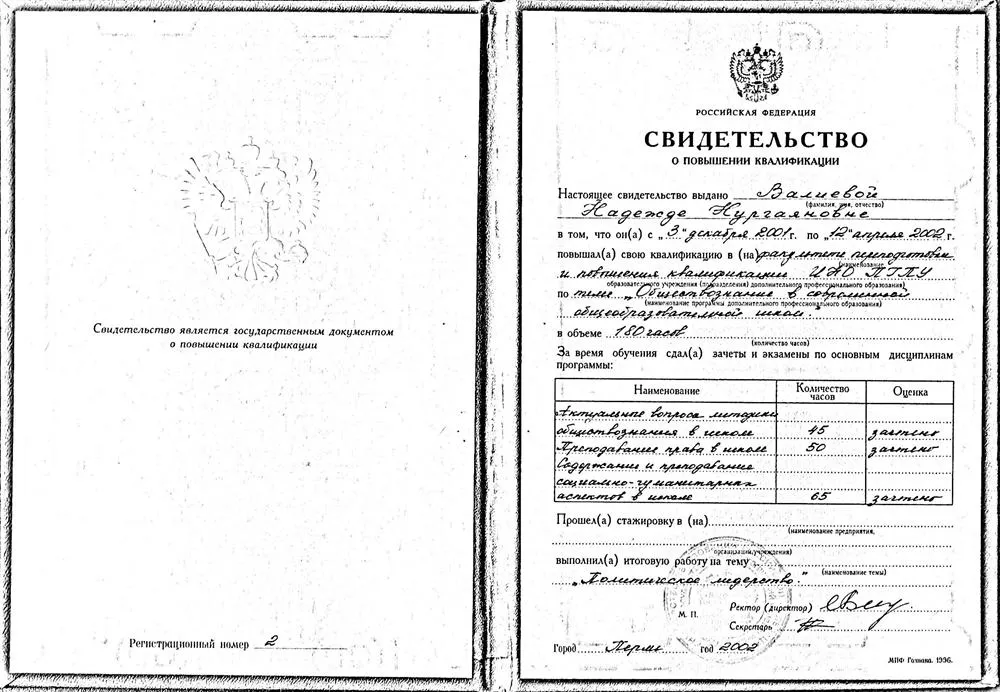 Свидетельство является государственным документом
о повышении квалификации
Регистрационный номер 2
РОССИЙСКАЯ ФЕДЕРАЦИЯ
СВИДЕТЕЛЬСТВО
О ПОВЫШЕНИИ КВАЛИФИКАЦИИ
Настоящее свидетельство выдано Валиевой
(фамилия, имя, отчество)
Надежде Нургаяновне
в том, что он(а) с „3" декабря 2001 г. по „12" апреля 2002 г.
повышал(а) свою квалификацию в (на) факультете переподготовки
(наименование
и повышения квалификации ИАО ПГПУ
образовательного учреждения (подразделения) дополнительного профессионального образования)
по теме „Обществознание в современной
(наименование программы дополнительного профессионального образования)
общеобразовательной школе."
в объеме 160 часов
(количество часов)
За время обучения сдал(а) зачеты и экзамены по основным дисциплинам
программы:
Наименование Количество часов Оценка
Актуальные вопросы методики
обществознания в школе 45 зачтено
Преподавание права в школе 50 зачтено
Содержание и преподавание
социально-гуманитарных
аспектов в школе 65 зачтено
Прошел(а) стажировку в (на)
(наименование предприятия,
организации, учреждения)
выполнил(а) итоговую работу на тему
(наименование темы)
„Политическое лидерство."
М. П. Ректор (директор)
Секретарь
Город Пермь год 2002
МПФ Гознака. 1996.